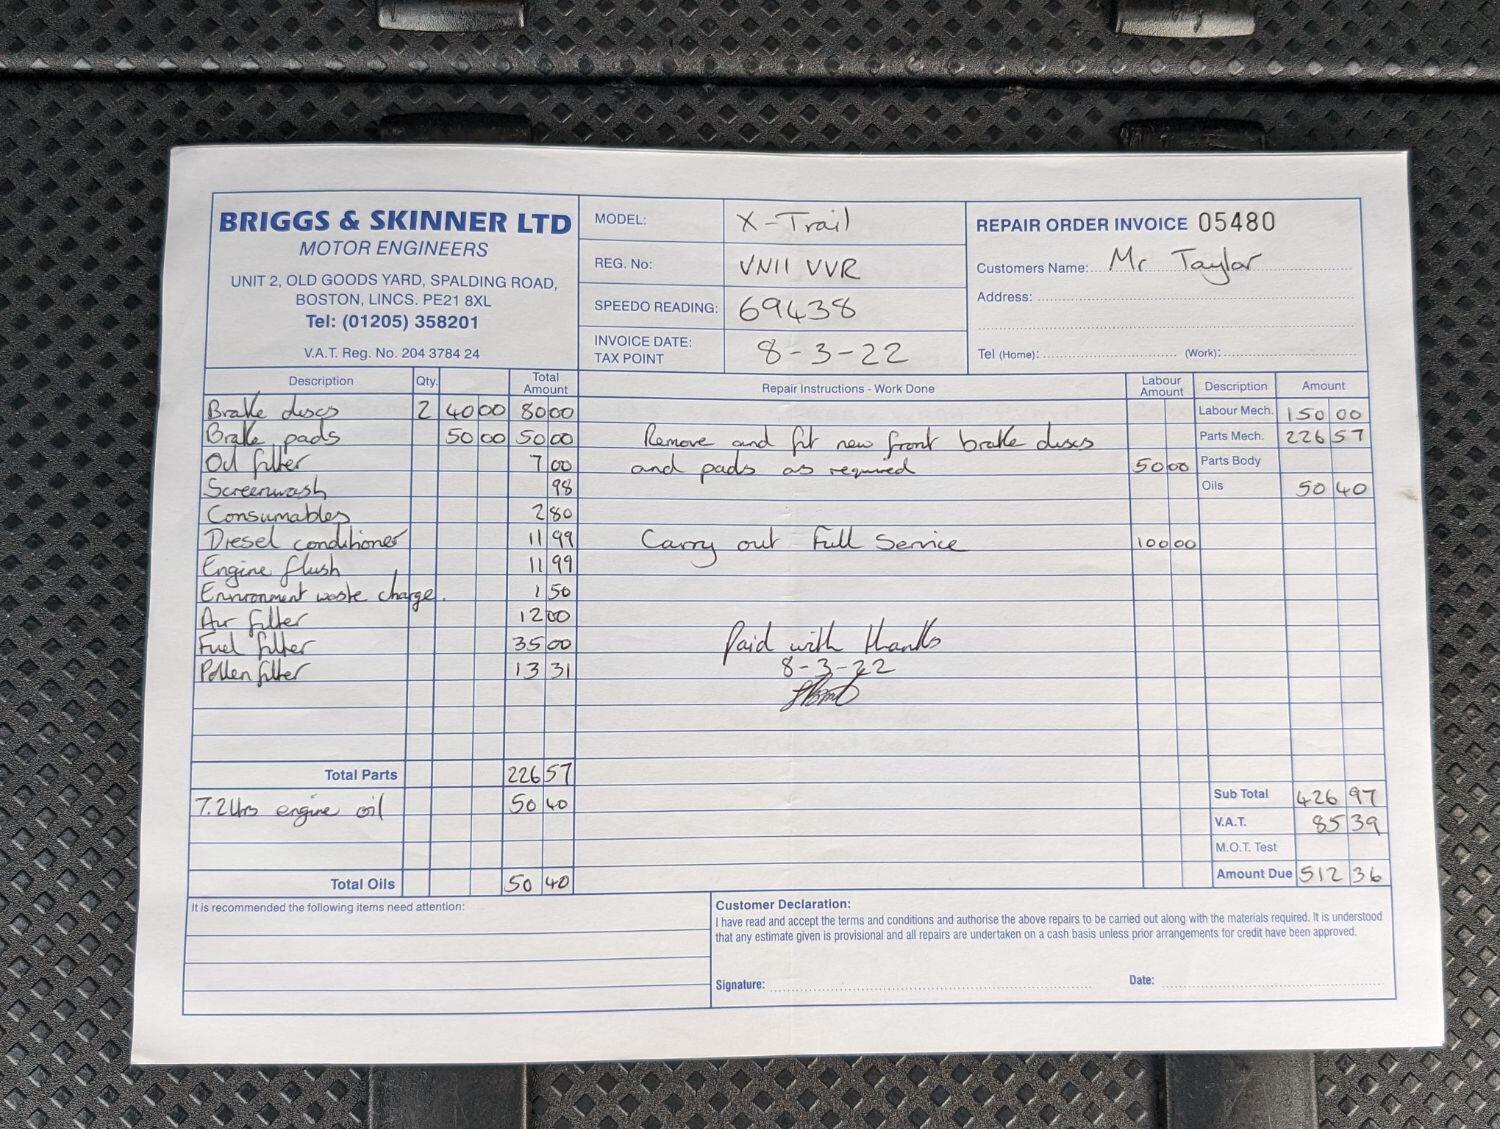 BRIGGS & SKINNER LTD
MOTOR ENGINEERS
UNIT 2, OLD GOODS YARD, SPALDING ROAD,
BOSTON, LINCS. PE21 8XL
Tel: (01205) 358201
V.A.T. Reg. No. 204 3784 24
MODEL: X-Trail
REG. No: VN11 VVR
SPEEDO READING: 69438
INVOICE DATE:
TAX POINT 8-3-22
REPAIR ORDER INVOICE 05480
Customers Name: Mr Taylor
Address:
Tel (Home): (Work):
Description Qty. Total Amount
Brake discs 2 40 00 80 00
Brake pads 50 00 50 00
Oil filter 7 00
Screenwash 98
Consumables 2 80
Diesel conditioner 11 99
Engine flush 11 99
Environment waste charge. 1 50
Air filter 12 00
Fuel filter 35 00
Pollen filter 13 31
Total Parts 226 57
7.2 ltrs engine oil 50 40
Total Oils 50 40
Repair Instructions - Work Done Labour Amount
Remove and fit new front brake discs
and pads as required 50 00
Carry out Full Service 100 00
Paid with thanks
8-3-22
Description Amount
Labour Mech. 150 00
Parts Mech. 226 57
Parts Body
Oils 50 40
Sub Total 426 97
V.A.T. 85 39
M.O.T. Test
Amount Due 512 36
It is recommended the following items need attention:
Customer Declaration:
I have read and accept the terms and conditions and authorise the above repairs to be carried out along with the materials required. It is understood
that any estimate given is provisional and all repairs are undertaken on a cash basis unless prior arrangements for credit have been approved.
Signature: Date: